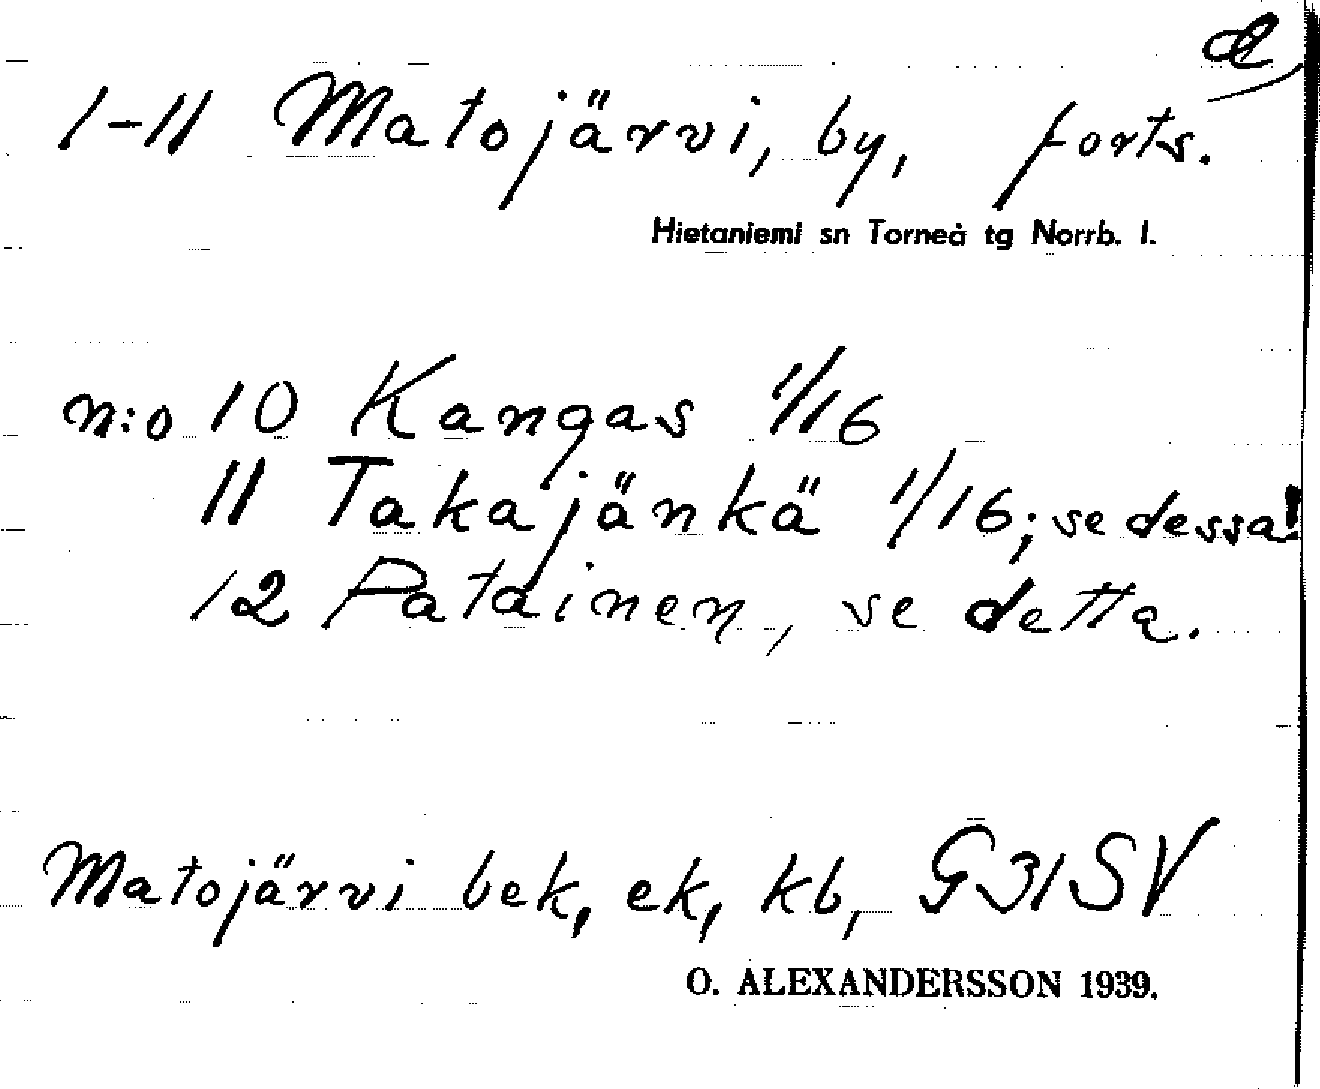 1-11 Matojärvi, by, forts.
Hietaniemi sn Torneå tg Norrb. l.
n:o 10 Kangas 1/16
11 Takajänkä 1/16; se dessa!
12 Patainen, se detta.
Matojärvi bek, ek, kb, G31SV
O. ALEXANDERSSON 1939.